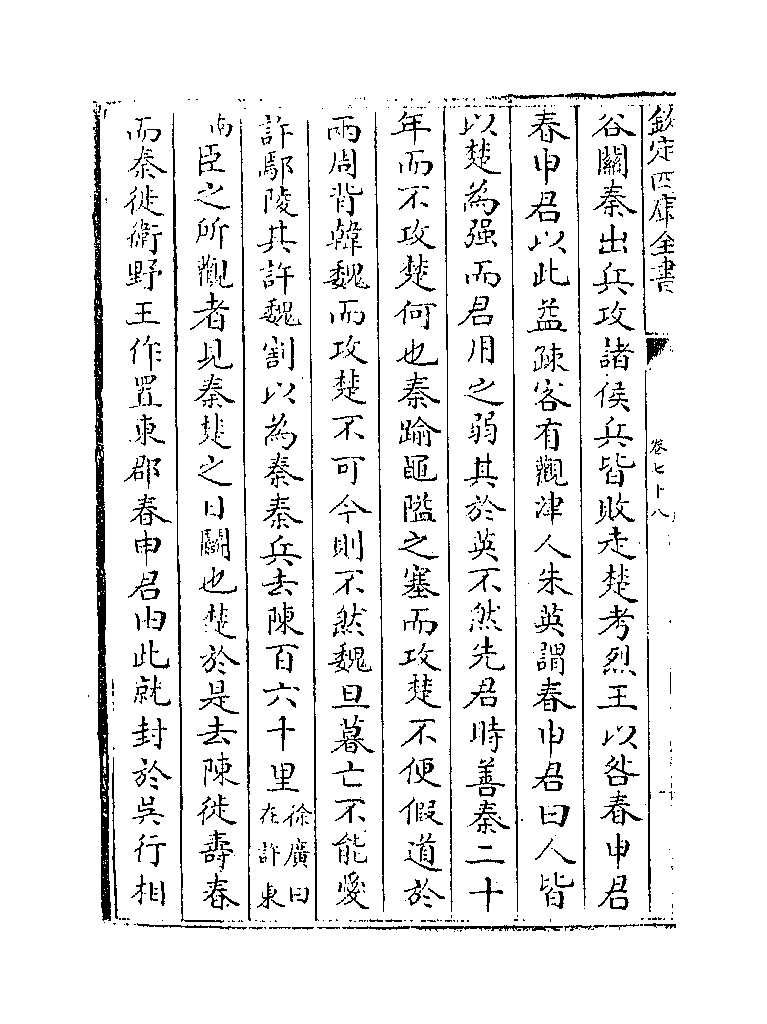 欽定四庫全書
卷七十八
谷關秦出兵攻諸侯兵皆敗走楚考烈王以咎春申君
春申君以此益疎客有觀津人朱英謂春申君曰人皆
以楚為强而君用之弱其於英不然先君時善秦二十
年而不攻楚何也秦踰黽隘之塞而攻楚不便假道於
兩周背韓魏而攻楚不可今則不然魏旦暮亡不能愛
許鄢陵其許魏割以為秦秦兵去陳百六十里徐廣曰在許東
南臣之所觀者見秦楚之日鬭也楚於是去陳徙壽春
而秦徙衛野王作置東郡春申君由此就封於吳行相